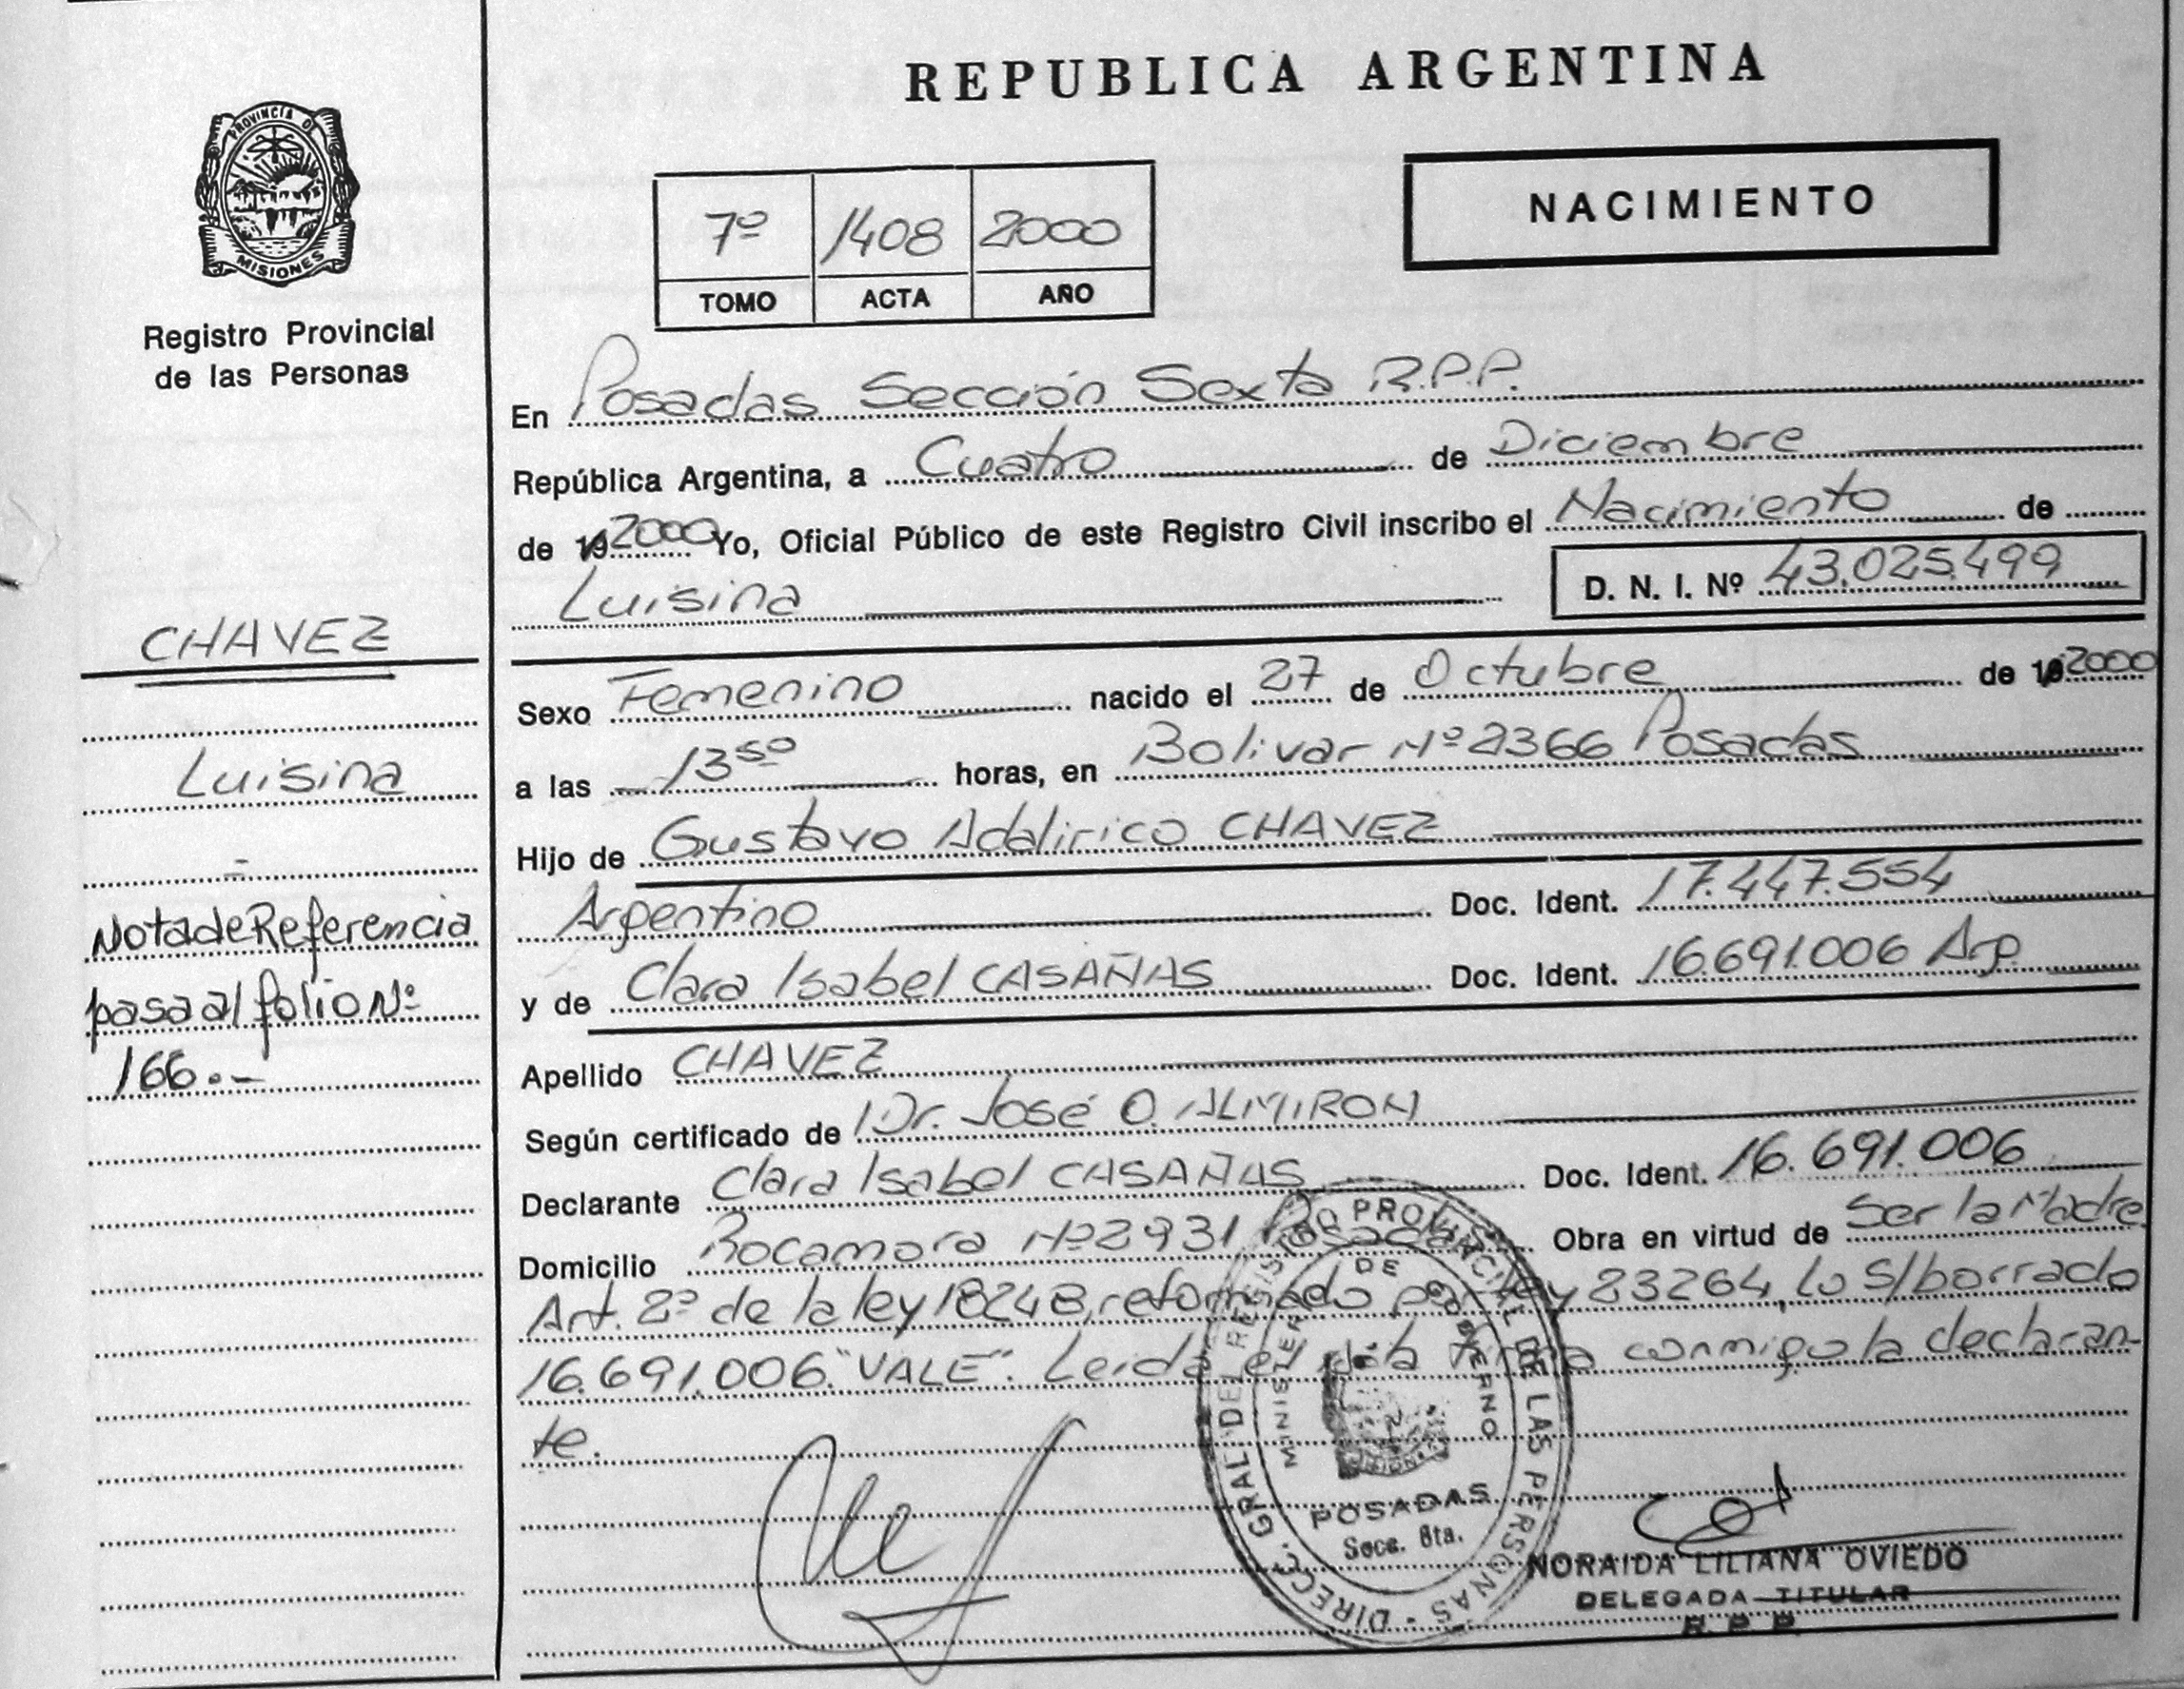 REPUBLICA ARGENTINA
PROVINCIA DE
MISIONES
Registro Provincial
de las Personas
NACIMIENTO
7º 1408 2000
TOMO ACTA AÑO
En Posadas Sección Sexta R.P.P.
República Argentina, a Cuatro de Diciembre
de 19 2000 Yo, Oficial Público de este Registro Civil inscribo el Nacimiento de
Luisina D. N. I. Nº 43.025.499
CHAVEZ
Luisina
Nota de Referencia
pasa al folio Nº
166.-
Sexo Femenino nacido el 27 de Octubre de 19 2000
a las 13 50 horas, en Bolivar Nº 2366 Posadas
Hijo de Gustavo Adalirico CHAVEZ
Argentino Doc. Ident. 17.447.554
y de Clara Isabel CASAÑAS Doc. Ident. 16.691.006 Arg.
Apellido CHAVEZ
Según certificado de Dr. José O. ALMIRON
Declarante Clara Isabel CASAÑAS Doc. Ident. 16.691.006
Domicilio Rocamora Nº 2931 Posadas Obra en virtud de Ser la Madre
Art. 2º de la ley 18248, reformado por ley 23264, lo S/borrado
16.691.006. "VALE". Leida el acta firma conmigo la declaran-
te.
DIRECC. GRAL DEL REGISTRO PROVINCIAL DE LAS PERSONAS
MINISTERIO DE GOBIERNO
POSADAS
Secc. 6ta.
NORAIDA LILIANA OVIEDO
DELEGADA TITULAR
R. P. P.